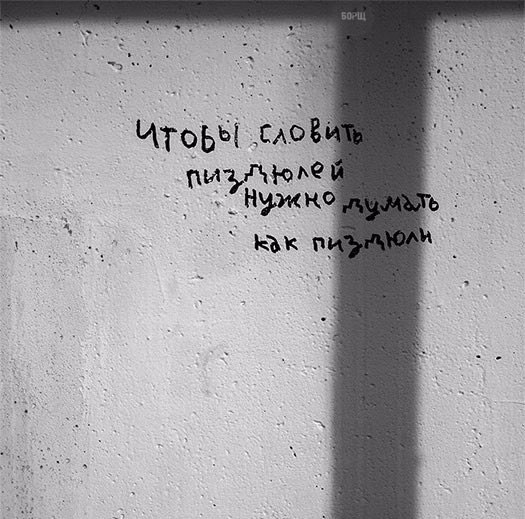 БОРЩ
Чтобы словить
пиздюлей
Нужно думать
как пиздюли